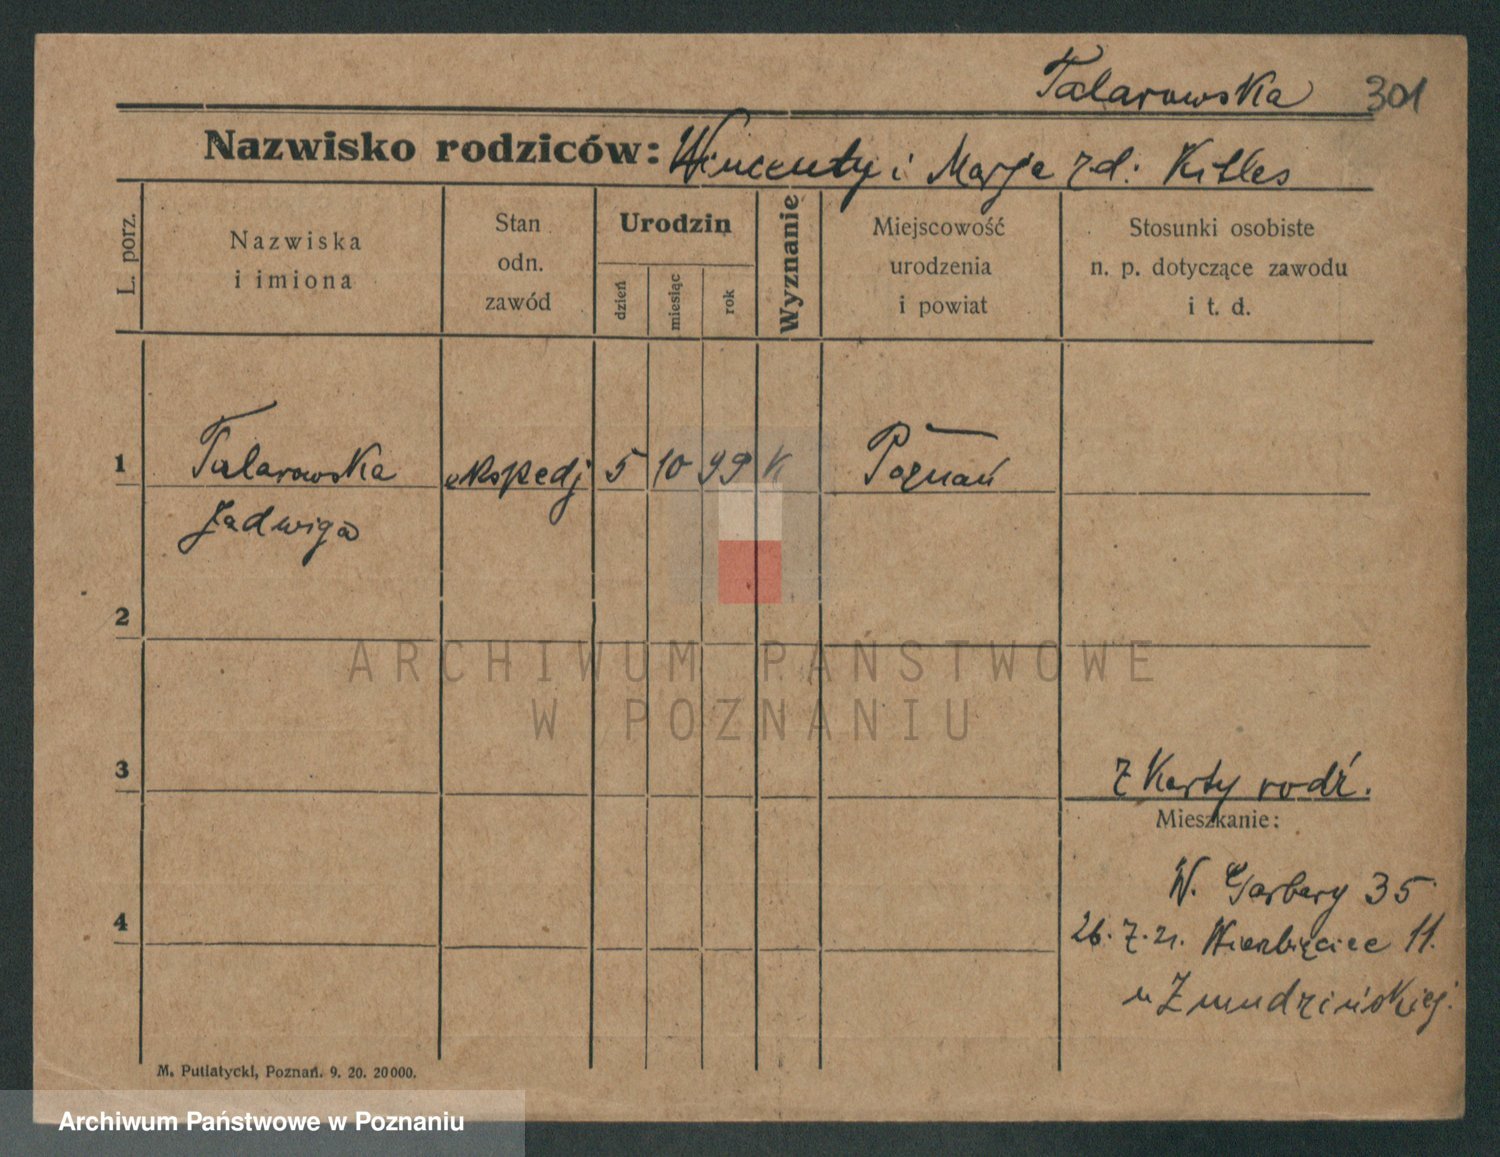 Talarowska 301
Nazwisko rodziców: Wincenty i Marja zd: Killes
L. porz.
Nazwiska
i imiona
Stan
odn.
zawód
Urodzin
dzień
miesiąc
rok
Wyznanie
Miejscowość
urodzenia
i powiat
Stosunki osobiste
n. p. dotyczące zawodu
i t. d.
1 Talarowska ekspedj 5 10 99 K Poznań
Jadwiga
2
3
z Karty rodź.
Mieszkanie:
W. Garbary 35
4
26.7.21. Wierzbięcice 11.
u Zmudzińskiej.
M. Putiatycki, Poznań. 9. 20. 20000.
ARCHIWUM PAŃSTWOWE
W POZNANIU
Archiwum Państwowe w Poznaniu